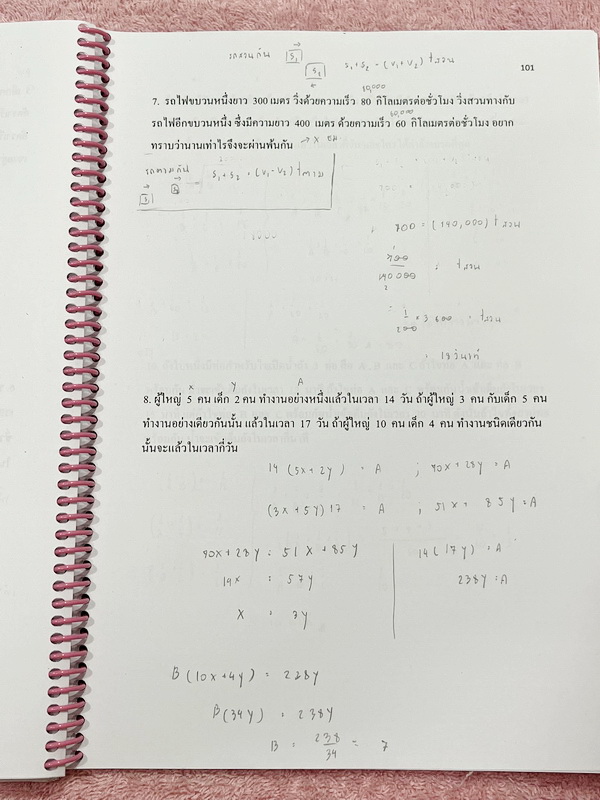 รถสวนกัน S₁ S₂ S₁+S₂ = (V₁+V₂) t สวน
101
80,000
7. รถไฟขบวนหนึ่งยาว 300 เมตร วิ่งด้วยความเร็ว 80 กิโลเมตรต่อชั่วโมง วิ่งสวนทางกับ
60,000
รถไฟอีกขบวนหนึ่ง ซึ่งมีความยาว 400 เมตร ด้วยความเร็ว 60 กิโลเมตรต่อชั่วโมง อยาก
ทราบว่านานเท่าไรจึงจะผ่านพ้นกัน → X
รถตามกัน S₁+S₂ = (V₁-V₂) t ตาม
700 = (140,000) t สวน
700
140000 = t สวน
1
200 × 3600 = t สวน
= 18 วินาที
x y A
8. ผู้ใหญ่ 5 คน เด็ก 2 คน ทำงานอย่างหนึ่งแล้วในเวลา 14 วัน ถ้าผู้ใหญ่ 3 คน กับเด็ก 5 คน
ทำงานอย่างเดียวกันนั้น แล้วในเวลา 17 วัน ถ้าผู้ใหญ่ 10 คน เด็ก 4 คน ทำงานชนิดเดียวกัน
นั้นจะแล้วในเวลากี่วัน
14 (5x+2y) = A ; 70x+28y = A
(3x+5y) 17 = A ; 51x + 85y = A
70x+28y = 51x+85y
14(17y) = A
19x = 57y
238y = A
x = 3y
B(10x+4y) = 238y
B(34y) = 238y
B = 238
34 = 7